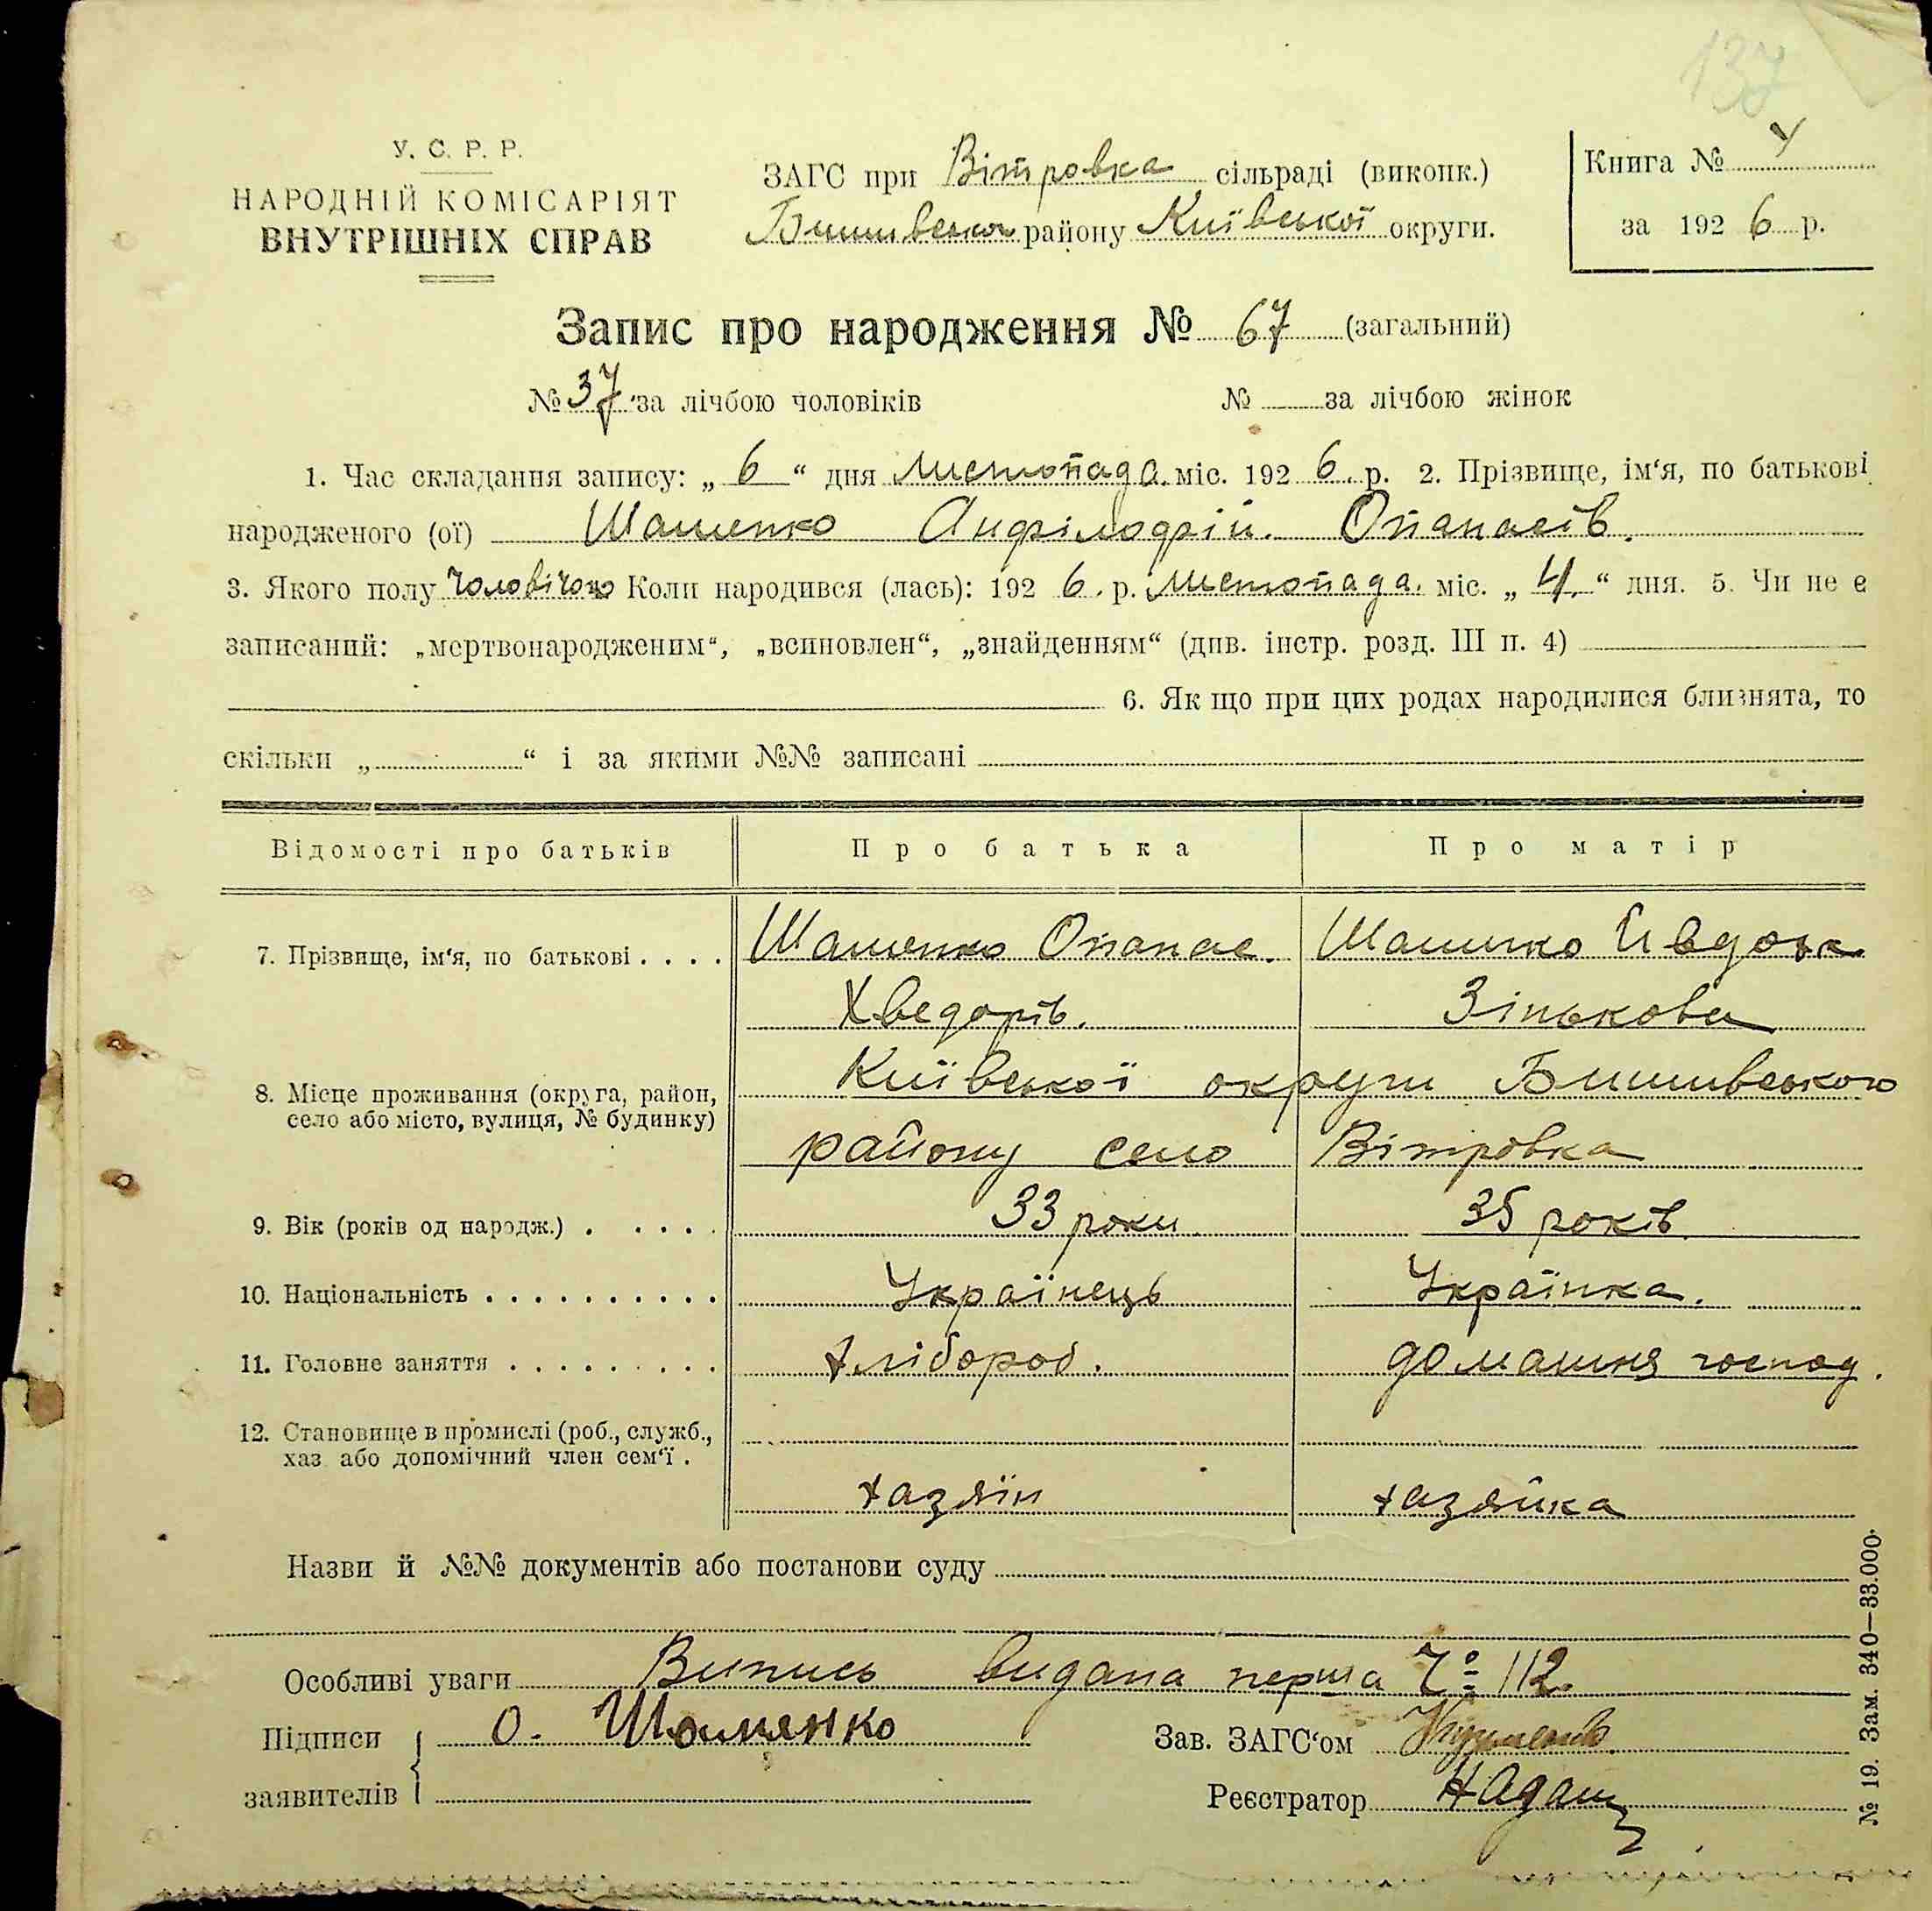 137
У. С. Р. Р.
НАРОДНІЙ КОМІСАРІЯТ
ВНУТРІШНІХ СПРАВ
ЗАГС при Вітровка сільраді (виконк.)
Бишивського району Київської округи.
Книга №
за 1926 р.
Запис про народження № 67 (загальний)
№ 37 за лічбою чоловіків № за лічбою жінок
1. Час складання запису: „ 6 “ дня листопада міс. 1926 р. 2. Прізвище, ім‘я, по батькові
народженого (ої) Шашенко Опанасів.
3. Якого полу чоловічого Коли народився (лась): 1926 р. листопада міс. „ 4 “ дня. 5. Чи не є
записаний: „мертвонародженим“, „всиновлен“, „знайденням“ (див. інстр. розд. III п. 4)
6. Як що при цих родах народилися близнята, то
скільки „ “ і за якими №№ записані
Відомості про батьків Про батька Про матір
7. Прізвище, ім‘я, по батькові . . . . Шашенко Опанас. Шашенко Явдоха
Хведорів. Зінькова
8. Місце проживання (округа, район, Київської округи Бишивського
село або місто, вулиця, № будинку)
району село Вітровка
9. Вік (років од народж.) . . . . . 33 роки 35 років
10. Національність . . . . . . . . . . Українець Українка.
11. Головне заняття . . . . . . . . . Хлібороб. домашня господ.
12. Становище в промислі (роб., служб.,
хаз або допомічний член сем‘ї .
хазяїн хазяйка
Назви й №№ документів або постанови суду
Особливі уваги Випись видана перша № 112.
Підписи О. Шашенко Зав. ЗАГС‘ом
заявителів Реєстратор
№ 19. Зам. 340—33.000.